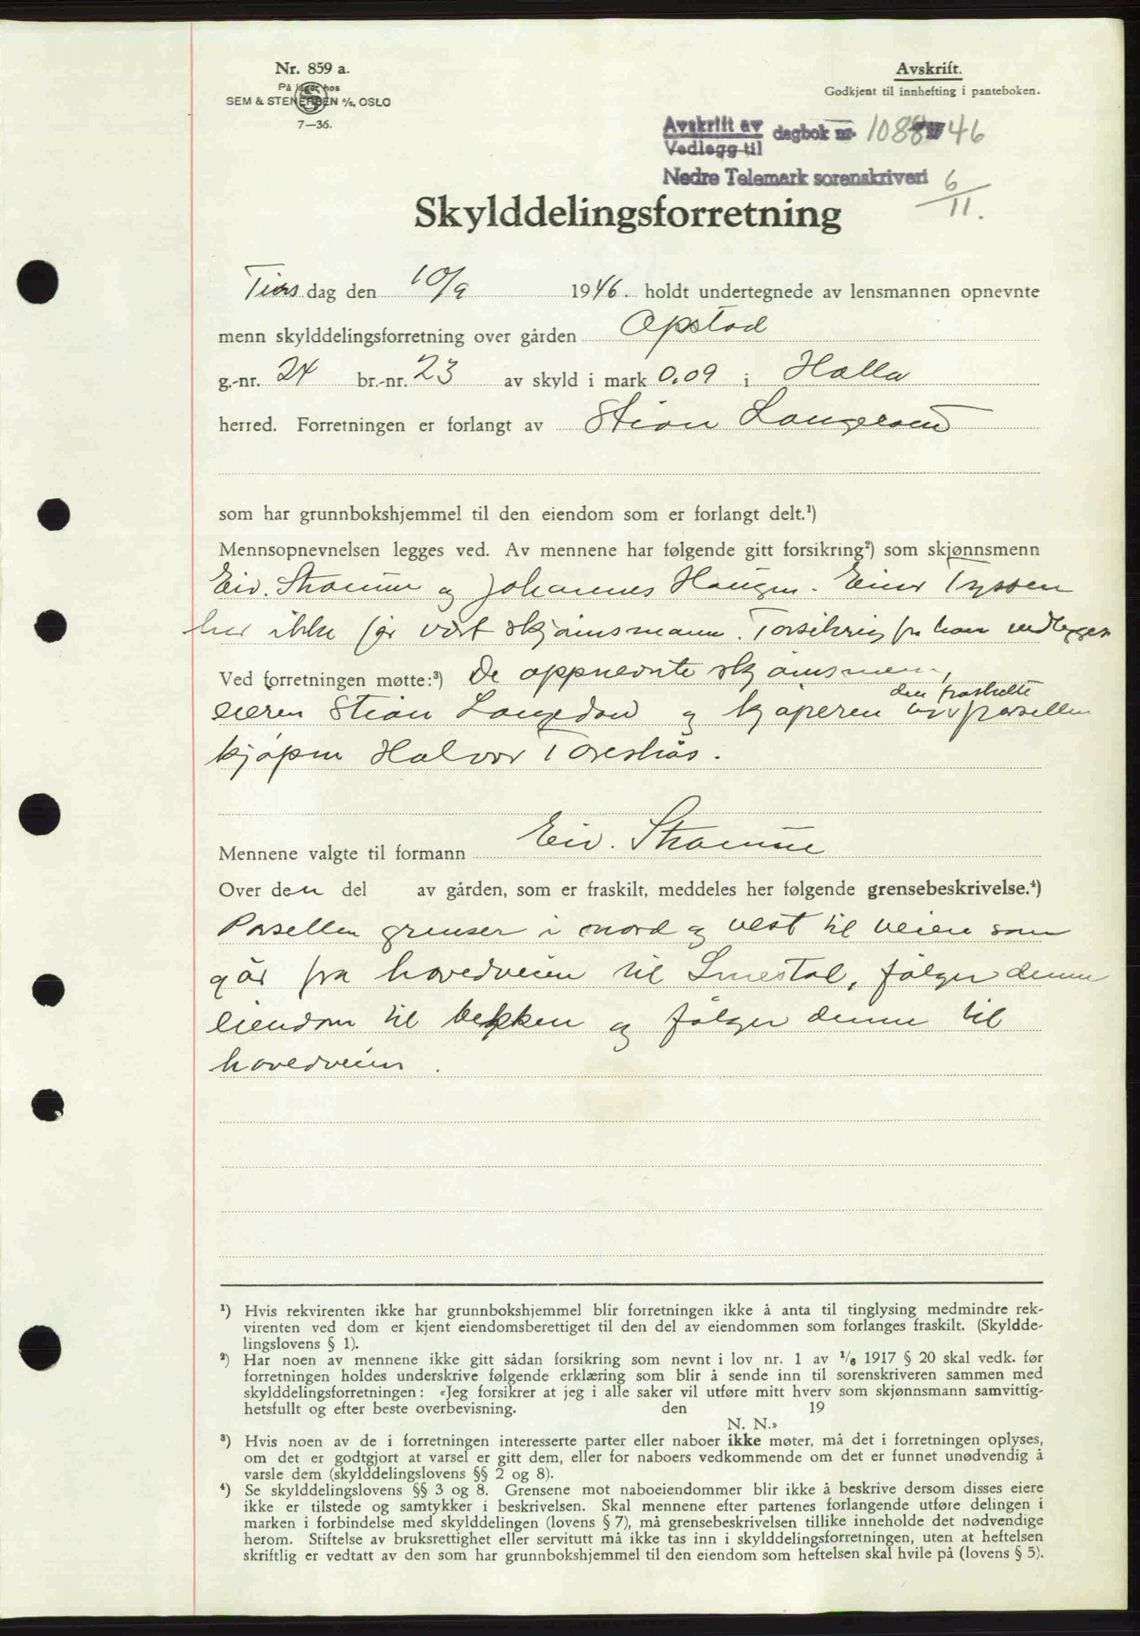 Nr. 859 a.
På lager hos
SEM & STENERSEN A/S, OSLO
7—36.
Avskrift.
Godkjent til innhefting i panteboken.
Avskrift av dagbok nr. 1088 46
Vedlegg til
Nedre Telemark sorenskriveri 6/11.
Skylddelingsforretning
Tirsdag den 10/9 1946. holdt undertegnede av lensmannen opnevnte
menn skylddelingsforretning over gården Opstad
g.-nr. 24 br.-nr. 23 av skyld i mark 0.09 i Holla
herred. Forretningen er forlangt av Stian
som har grunnbokshjemmel til den eiendom som er forlangt delt.¹)
Mennsopnevnelsen legges ved. Av mennene har følgende gitt forsikring²) som skjønnsmenn
Eiv. Stramme og Johannes Haugen. Einar
har ikke før vært skjønsmann. Forsikring fra ham vedlegges
Ved forretningen møtte:³) De oppnevnte skjønsmenn,
den fraskilte
eieren Stian og kjøperen av parsellen
kjøpm Halvor
Mennene valgte til formann Eiv. Stramme
Over den del av gården, som er fraskilt, meddeles her følgende grensebeskrivelse.⁴)
Parsellen grenser i nord og vest til veien som
går fra hovedveien til følger denne
eiendom til bekken og følger denne til
hovedveien.
¹) Hvis rekvirenten ikke har grunnbokshjemmel blir forretningen ikke å anta til tinglysing medmindre rek-
virenten ved dom er kjent eiendomsberettiget til den del av eiendommen som forlanges fraskilt. (Skyldde-
lingslovens § 1).
²) Har noen av mennene ikke gitt sådan forsikring som nevnt i lov nr. 1 av 1/6 1917 § 20 skal vedk. før
forretningen holdes underskrive følgende erklæring som blir å sende inn til sorenskriveren sammen med
skylddelingsforretningen: «Jeg forsikrer at jeg i alle saker vil utføre mitt hverv som skjønnsmann samvittig-
hetsfullt og efter beste overbevisning. den 19
N. N.»
³) Hvis noen av de i forretningen interesserte parter eller naboer ikke møter, må det i forretningen oplyses,
om det er godtgjort at varsel er gitt dem, eller for naboers vedkommende om det er funnet unødvendig å
varsle dem (skylddelingslovens §§ 2 og 8).
⁴) Se skylddelingslovens §§ 3 og 8. Grensene mot naboeiendommer blir ikke å beskrive dersom disses eiere
ikke er tilstede og samtykker i beskrivelsen. Skal mennene efter partenes forlangende utføre delingen i
marken i forbindelse med skylddelingen (lovens § 7), må grensebeskrivelsen tillike inneholde det nødvendige
herom. Stiftelse av bruksrettighet eller servitutt må ikke tas inn i skylddelingsforretningen, uten at heftelsen
skriftlig er vedtatt av den som har grunnbokshjemmel til den eiendom som heftelsen skal hvile på (lovens § 5).